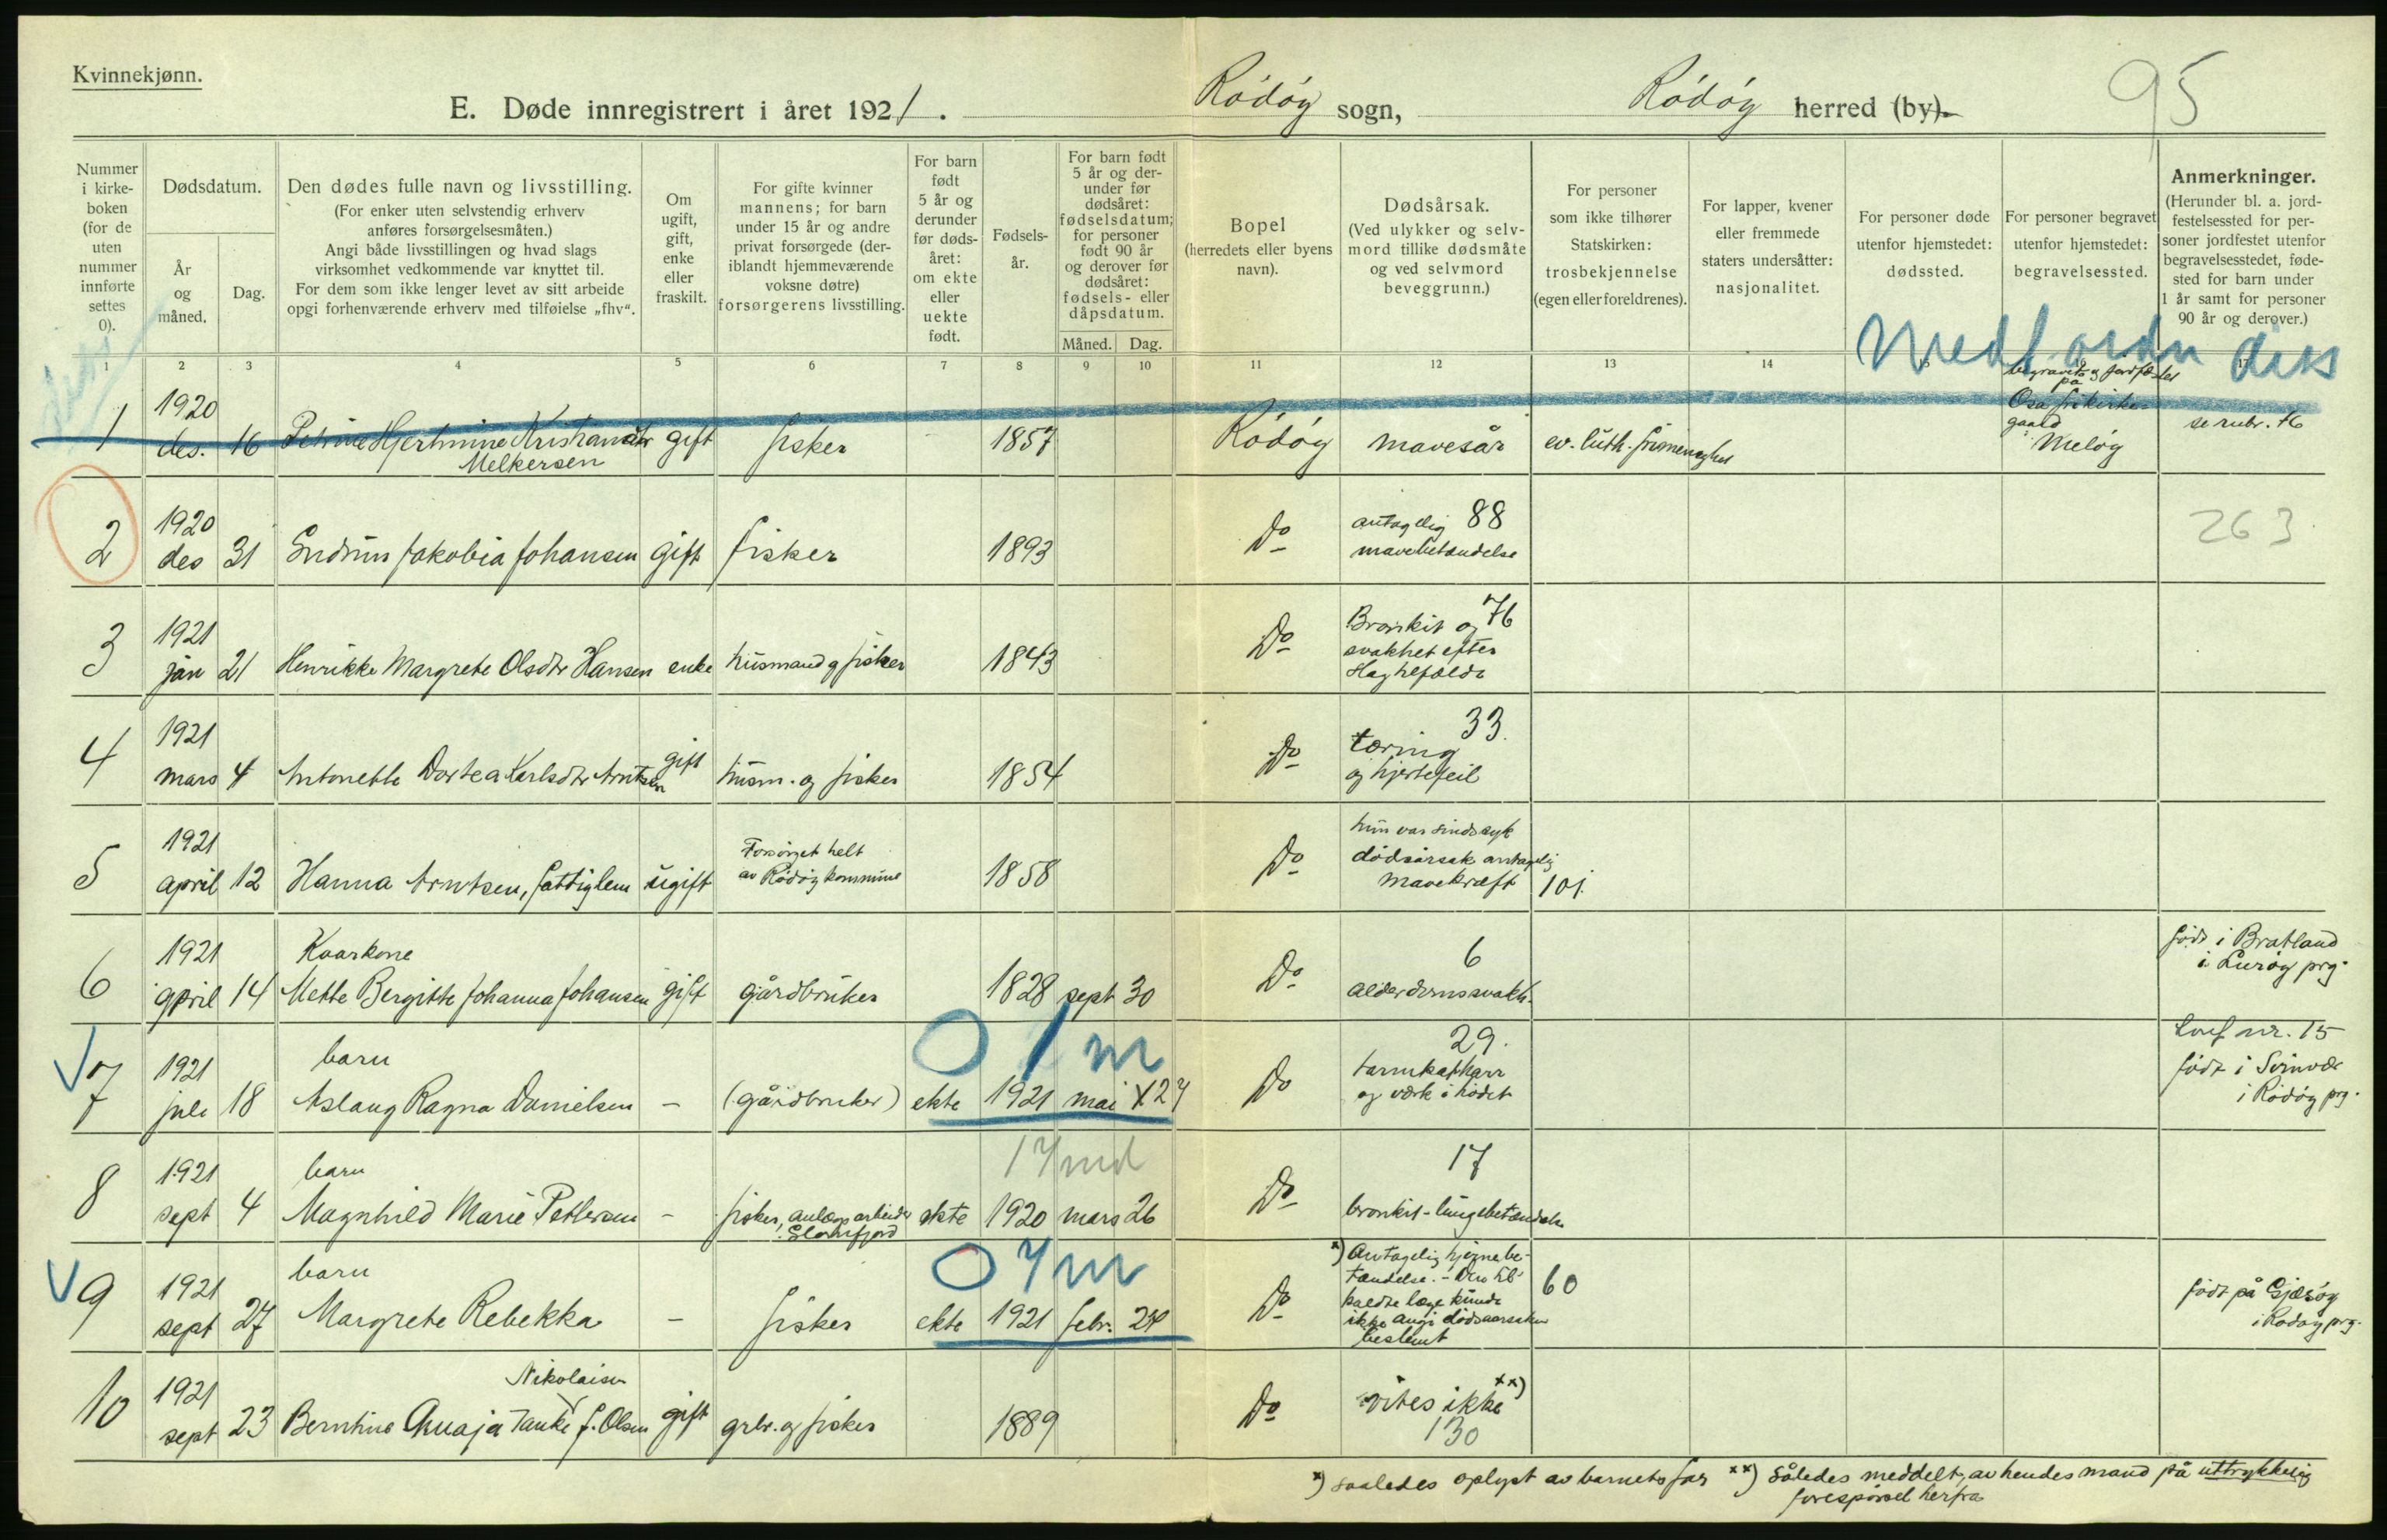 Kvinnekjønn.
E. Døde innregistrert i året 1921. Rödöy sogn, Rödöy herred (by).
95
Nummer i kirkeboken (for de uten nummer innførte settes 0).
Dødsdatum.
År og måned.
Dag.
Den dødes fulle navn og livsstilling.
(For enker uten selvstendig erhverv
anføres forsørgelsesmåten.)
Angi både livsstillingen og hvad slags
virksomhet vedkommende var knyttet til.
For dem som ikke lenger levet av sitt arbeide
opgi forhenværende erhverv med tilføielse „fhv“.
Om ugift, gift, enke eller fraskilt.
For gifte kvinner
mannens; for barn
under 15 år og andre
privat forsørgede (der-
iblandt hjemmeværende
voksne døtre)
forsørgerens livsstilling.
For barn født 5 år og derunder før dødsåret: om ekte eller uekte født.
Fødselsår.
For barn født
5 år og der-
under før
dødsåret:
fødselsdatum;
for personer
født 90 år
og derover før
dødsåret:
fødsels- eller
dåpsdatum.
Måned. Dag.
Bopel
(herredets eller byens
navn).
Dødsårsak.
(Ved ulykker og selv-
mord tillike dødsmåte
og ved selvmord
beveggrunn.)
For personer
som ikke tilhører
Statskirken:
trosbekjennelse
(egen eller foreldrenes).
For lapper, kvener
eller fremmede
staters undersåtter:
nasjonalitet.
For personer døde
utenfor hjemstedet:
dødssted.
For personer begravet
utenfor hjemstedet:
begravelsessted.
Anmerkninger.
(Herunder bl. a. jord-
festelsessted for per-
soner jordfestet utenfor
begravelsesstedet, føde-
sted for barn under
1 år samt for personer
90 år og derover.)
1 2 3 4 5 6 7 8 9 10 11 12 13 14 15 16 17
1 1920 des. 16 Petrine Hjertmine Kristiansdtr Melkersen gift fisker 1857 Rödöy mavesår ev. luth. frimenighet
begravet og jordfæstet
på
Osa frikirke-
gaard
Melöy
se rubr. 16
2 1920 des 31 Jakobia Johansen gift fisker 1893 Do antagelig 88
mavebetændelse
263
3 1921 jan 21 Henrikke Margrete Olsdtr Hansen enke husmand og fisker 1843 Do Bronkit og 76
svakhet efter
4 1921 mars 4 Antonette Dortea Karlsdtr Arntsen gift husm. og fisker 1854 Do 33.
tæring
og hjertefeil
5 1921 april 12 Hanna Arntsen, fattiglem ugift Forsörget helt
av Rödöy kommune 1858 Do hun var sindssyk
dödsårsak antagelig
mavekræft 101.
6 1921 april 14 Kaarkone
Mette Bergitte Johanna Johansen gift gårdbruker 1828 sept 30 Do 6
alderdomssvakh.
född i Bratland
i Luröy prg.
0 1 m
7 1921 juli 18 barn
Aslaug Ragna Danielsen - (gårdbruker) ekte 1921 mai 27 Do 29.
tarmkatharr
og værk i hodet
nr. 15
född i Svinvær
i Rödöy prg.
17 md
8 1921 sept 4 barn
Magnhild Marie Pettersen - fisker, anlægsarbeider
Glomfjord ekte 1920 mars 26 Do 17
bronkit-lungebetændelse
0 7 m
9 1921 sept 27 barn
Margrete Rebekka - fisker ekte 1921 febr. 24 Do x) Antagelig hjernebe-
tændelse. - Den til-
kaldte læge kunde
ikke angi dödsaarsaken
bestemt 60
född på Gjæröy
i Rödöy prg.
10 1921 sept 23 Nikolaisen
Berntine Anaja f. Olsen gift grbr. og fisker 1889 Do vites ikke xx)
130
x) saaledes oplyst av barnets far xx) således meddelt av hendes mand på uttrykkelig
forespörsel herfra